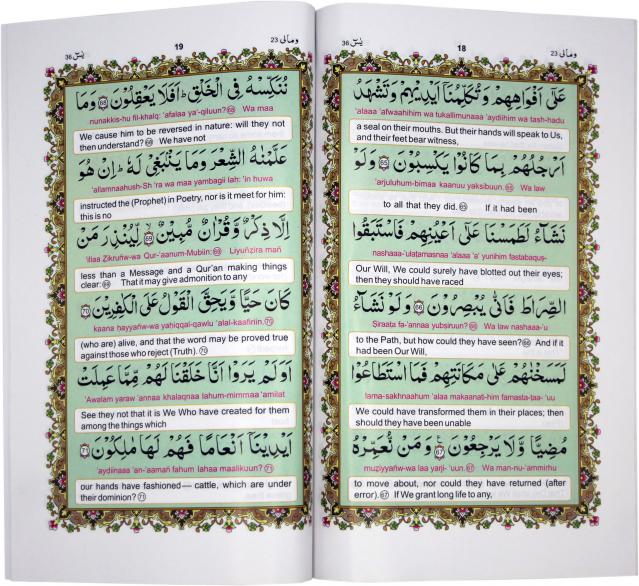 يٰسٓ 36
18
وَمَالِىَ 23
عَلٰٓى اَفْوَاهِهِمْ وَتُكَلِّمُنَآ اَيْدِيْهِمْ وَتَشْهَدُ
'alaaa 'afwaahihim wa tukallimunaaa 'aydiihim wa tash-hadu
a seal on their mouths. But their hands will speak to Us,
and their feet bear witness,
اَرْجُلُهُمْ بِمَا كَانُوْا يَكْسِبُوْنَ 65 وَلَوْ
'arjuluhum-bimaa kaanuu yaksibuun. 65 Wa law
to all that they did. 65 If it had been
نَشَآءُ لَطَمَسْنَا عَلٰٓى اَعْيُنِهِمْ فَاسْتَبَقُوا
nashaaa-'ulaṭamasnaa 'alaaa 'a' yunihim fastabaquṣ-
Our Will, We could surely have blotted out their eyes;
then they should have raced
الصِّرَاطَ فَاَنّٰى يُبْصِرُوْنَ 66 وَلَوْ نَشَآءُ
Ṣiraata fa-'annaa yubsiruun? 66 Wa law nashaaa-'u
to the Path, but how could they have seen? 66 And if it
had been Our Will,
لَمَسَخْنٰهُمْ عَلٰى مَكَانَتِهِمْ فَمَا اسْتَطَاعُوْا
lama-sakhnaahum 'alaa makaanati-him famasta-taa-'uu
We could have transformed them in their places; then
should they have been unable
مُضِيًّا وَّلَا يَرْجِعُوْنَ 67 وَمَنْ نُّعَمِّرْهُ
muziyyañw-wa laa yarji-'uun. 67 Wa man-nu-'ammirhu
to move about, nor could they have returned (after
error). 67 If We grant long life to any,
يٰسٓ 36
19
وَمَالِىَ 23
نُنَكِّسْهُ فِى الْخَلْقِ ؕ اَفَلَا يَعْقِلُوْنَ 68 وَمَا
nunakkis-hu fil-khalq: 'afalaa ya'-qiluun? 68 Wa maa
We cause him to be reversed in nature: will they not
then understand? 68 We have not
عَلَّمْنٰهُ الشِّعْرَ وَمَا يَنْۢبَغِىْ لَهٗ ؕ اِنْ هُوَ
'allamnaahush-Sh 'ra wa maa yambagii lah: 'in huwa
instructed the (Prophet) in Poetry, nor is it meet for him:
this is no
اِلَّا ذِكْرٌ وَّقُرْاٰنٌ مُّبِيْنٌ 69 لِّيُنْذِرَ مَنْ
'illaa Zikruñw-wa Qur-'aanum-Mubiin: 69 Liyuñzira mañ
less than a Message and a Qur'an making things
clear: 69 That it may give admonition to any
كَانَ حَيًّا وَّيَحِقَّ الْقَوْلُ عَلَى الْكٰفِرِيْنَ 70
kaana hayyañw-wa yaḥiqqal-qawlu 'alal-kaafiriin. 70
(who are) alive, and that the word may be proved true
against those who reject (Truth). 70
اَوَلَمْ يَرَوْا اَنَّا خَلَقْنَا لَهُمْ مِّمَّا عَمِلَتْ
'Awalam yaraw 'annaa khalaqnaa lahum-mimmaa 'amilat
See they not that it is We Who have created for them
among the things which
اَيْدِيْنَآ اَنْعَامًا فَهُمْ لَهَا مٰلِكُوْنَ 71
'aydiinaaa 'an-'aamañ fahum lahaa maalikuun? 71
our hands have fashioned— cattle, which are under
their dominion? 71